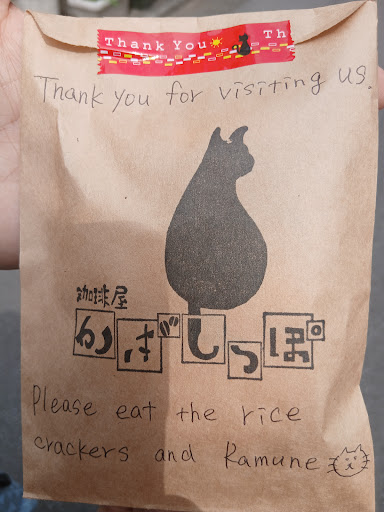 Thank You Th
Thank you for visiting us.
珈琲屋
かぎしっぽ
Please eat the rice
crackers and Ramune